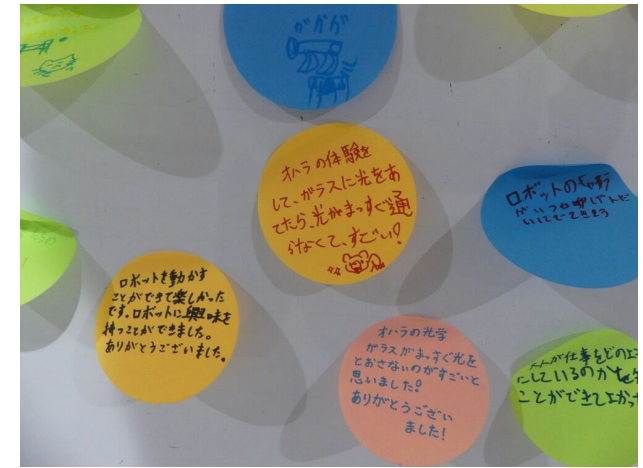 ガガガ
オハラの体験を
して、ガラスに光をあ
てたら、光がまっすぐ通
らなくて、すごい!
ロボットの
ロボットを動かす
ことができて楽しかった
です。ロボットに興味を
持つことができました。
ありがとうございました。
オハラの光学
ガラスがまっすぐ光を
とおさないのがすごいと
思いました!
ありがとうござい
ました!
が仕事をどの
にしているのか
ことができてよかっ